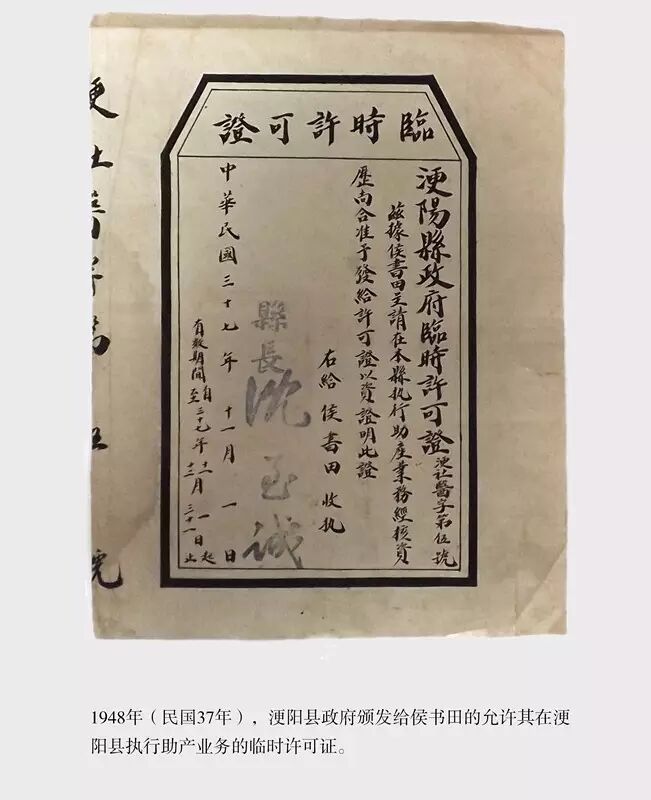 臨時許可證
浭陽縣政府臨時許可證浭社醫字第伍號
茲據侯書田主請在本縣執行助產業務經核資
歷尚合准予發給許可證以資證明此證
右給侯書田收执
縣長沈至誠
中華民國三十七年十一月一日
有效期間自三十七年十一月一日起
至三十七年十二月三十一日止
浭社醫字第伍號
1948年（民国37年），浭阳县政府颁发给侯书田的允许其在浭
阳县执行助产业务的临时许可证。